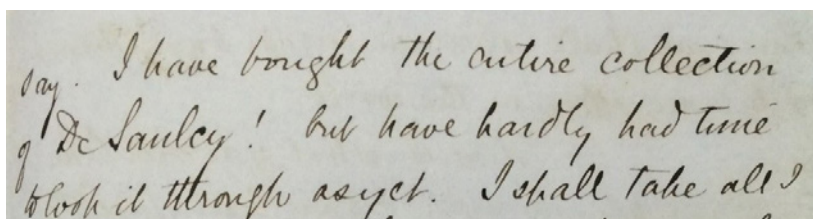 say. I have bought the entire collection
of De Saulcy! but have hardly had time
to look it through as yet. I shall take all I